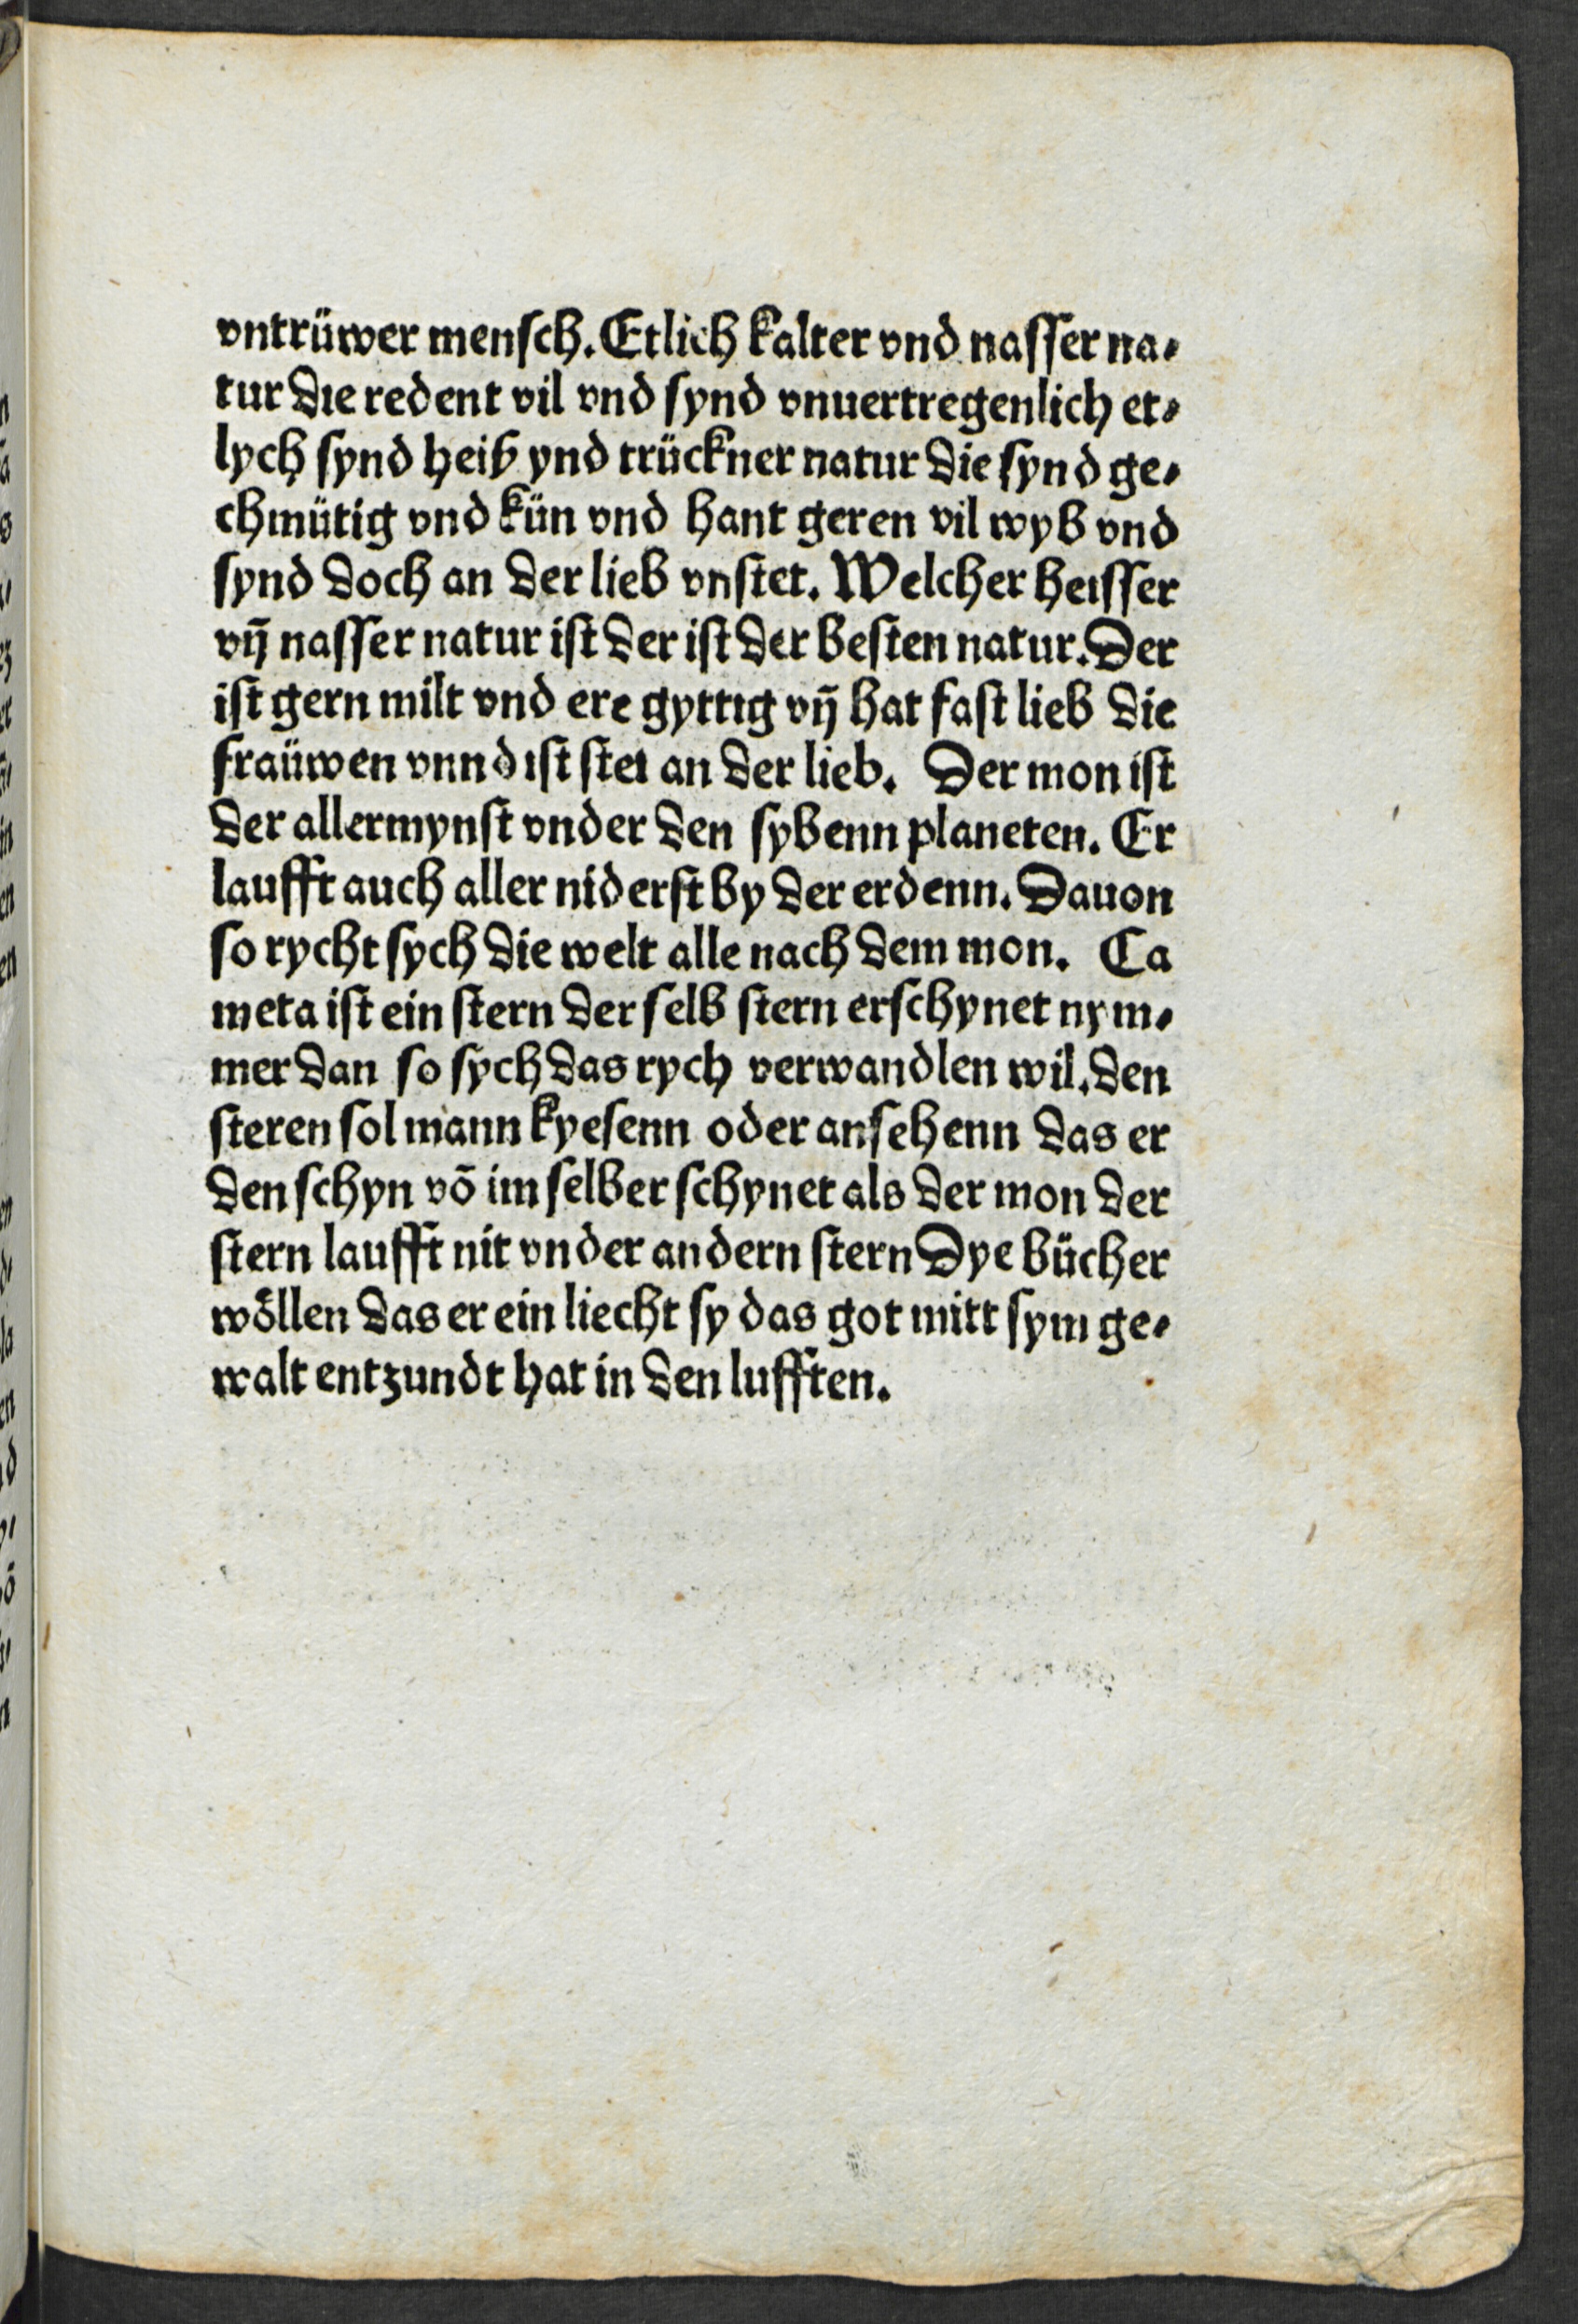 vntrüwer mensch. Etlich kalter vnd nasser na⸗
tur die redent vil vnd synd vnuertregenlich et⸗
lych synd heiß ynd trückner natur die synd ge⸗
chmütig vnd kün vnd hant geren vil wyb vnd
synd doch an der lieb vnstet. Welcher heisser
vñ nasser natur ist der ist der besten natur. Der
ist gern milt vnd ere gyttig vñ hat fast lieb die
fraüwen vnnd ist stet an der lieb. Der mon ist
der allermynst vnder den sybenn planeten. Er
laufft auch aller niderst by der erdenn. Dauon
so rycht sych die welt alle nach dem mon. Ca
meta ist ein stern der selb stern erschynet nym⸗
mer dan so sych das rych verwandlen wil. den
steren sol mann kyesenn oder ansehenn das er
den schyn võ im selber schynet als der mon der
stern laufft nit vnder andern stern Dye bücher
wöllen das er ein liecht sy das got mitt sym ge⸗
walt entzundt hat in den lufften.